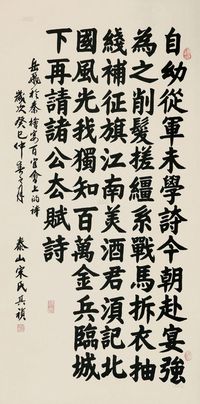 自幼從軍未學詩今朝赴宴強
為之削髮搓韁系戰馬拆衣抽
綫補征旗江南美酒君須記北
國風光我獨知百萬金兵臨城
下再請諸公去賦詩
岳飛於秦檜宴百官會上的詩
歲次癸巳仲春之月
泰山宋氏其禎